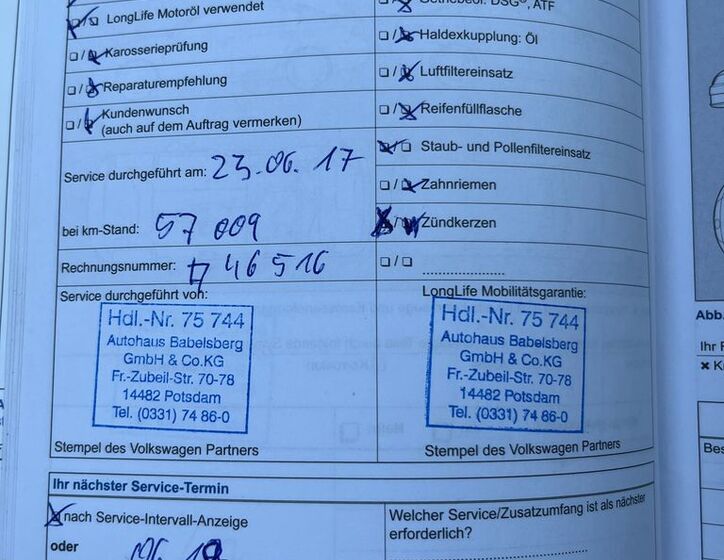 LongLife Motoröl verwendet
Karosserieprüfung
Reparaturempfehlung
Kundenwunsch
(auch auf dem Auftrag vermerken)
Service durchgeführt am: 23.06.17
bei km-Stand: 57 009
Rechnungsnummer: 46516
Service durchgeführt von:
Hdl.-Nr. 75 744
Autohaus Babelsberg
GmbH & Co.KG
Fr.-Zubeil-Str. 70-78
14482 Potsdam
Tel. (0331) 74 86-0
Stempel des Volkswagen Partners
Getriebeöl: DSG®, ATF
Haldexkupplung: Öl
Luftfiltereinsatz
Reifenfüllflasche
Staub- und Pollenfiltereinsatz
Zahnriemen
Zündkerzen
LongLife Mobilitätsgarantie:
Hdl.-Nr. 75 744
Autohaus Babelsberg
GmbH & Co.KG
Fr.-Zubeil-Str. 70-78
14482 Potsdam
Tel. (0331) 74 86-0
Stempel des Volkswagen Partners
Ihr nächster Service-Termin
nach Service-Intervall-Anzeige
oder
Welcher Service/Zusatzumfang ist als nächster
erforderlich?
Abb.
Ihr